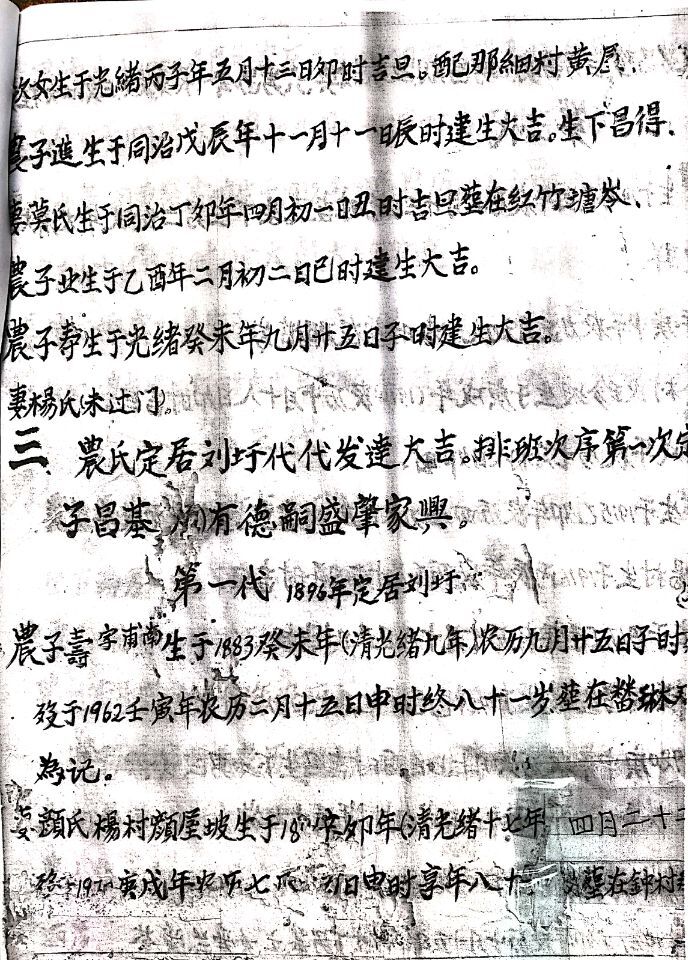 次女生于光緒丙子年五月十三日卯时吉旦。配那細村黄
農子進生于同治戊辰年十一月十一日辰时建生大吉。生下昌得、
妻莫氏生于同治丁卯年四月初一日丑时吉旦塟在红竹塘岺、
農子业生于乙酉年二月初二日巳时建生大吉。
農子寿生于光绪癸未年九月廿五日子时建生大吉。
妻楊氏(未过门)。
三、農氏定居刘圩代代发達大吉。排班次序第一次定
子昌基 有德嗣盛肇家興。
第一代 1896年定居刘圩
農子壽字甫南生于1883癸未年(清光绪九年)农历九月廿五日子时
殁于1962壬寅年农历二月十五日申时终八十一岁塟在 琳
為记。
妻顔氏楊村顔屋坡生于18 辛卯年(清光绪十七年 四月二十二
殁于19 庚戌年农历七 日申时享年八十 塟在钟村